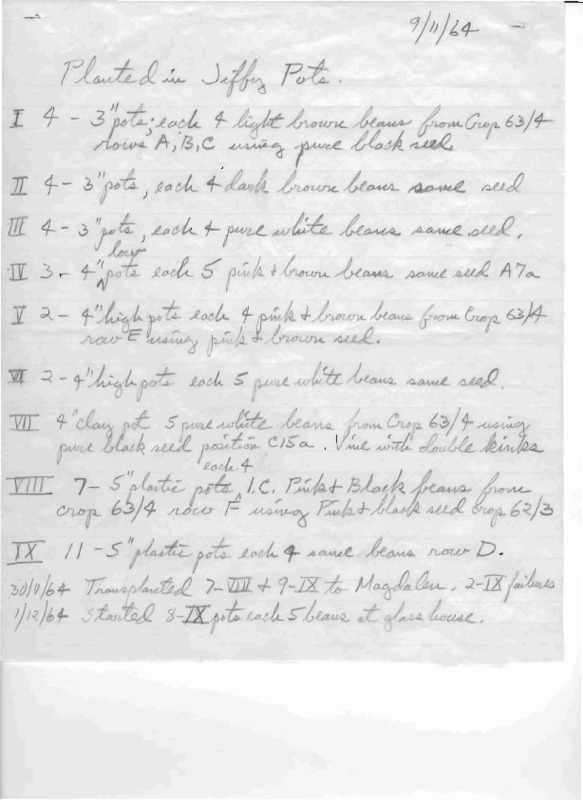 9/11/64
Planted in Jiffy Pots.
I 4 - 3" pots, each 4 light brown beans from Crop 63/4
rows A, B, C using pure black seed
II 4 - 3" pots, each 4 dark brown beans same seed
III 4 - 3" pots, each 4 pure white beans same seed.
low
IV 3 - 4" pots each 5 pink + brown beans same seed A7a
V 2 - 4" high pots each 4 pink + brown beans from Crop 63/4
row E using pink + brown seed.
VI 2 - 4" high pots each 5 pure white beans same seed.
VII 4" clay pot 5 pure white beans from Crop 63/4 using
pure black seed position C15a. Vine with double kinks
each 4
VIII 7 - 5" plastic pots I.C. Pink + Black beans from
crop 63/4 row F using Pink + black seed crop 62/3
IX 11 - 5" plastic pots each 4 same beans row D.
30/11/64 Transplanted 7-VIII + 9-IX to Magdalen. 2-IX failures
1/12/64 Started 8-IX pots each 5 beans at glass house.